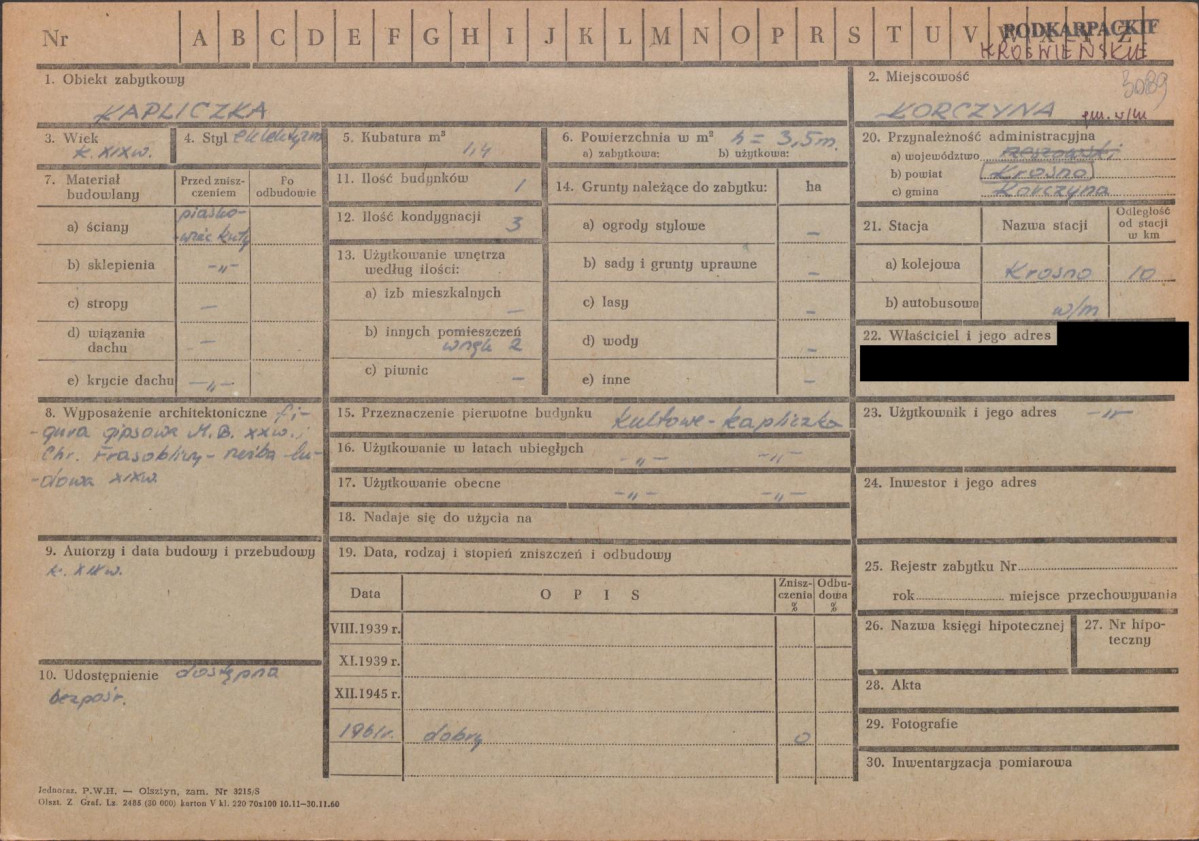 Nr A B C D E F G H I J K L M N O P R S T U V W X Y Z
PODKARPACKIE
KROŚNIEŃSKIE
1. Obiekt zabytkowy
KAPLICZKA
2. Miejscowość
3089
KORCZYNA gm. w/m
3. Wiek
k. XIXw.
4. Styl eklektyzm
5. Kubatura m³
1,4
6. Powierzchnia w m² h = 3,5m.
a) zabytkowa: b) użytkowa:
20. Przynależność administracyjna
a) województwo rzeszowski
b) powiat Krosno
c) gmina Korczyna
7. Materiał budowlany
Przed zniszczeniem
Po odbudowie
a) ściany
piasko-
-wiec kuty
b) sklepienia -„-
c) stropy -
d) wiązania dachu -
e) krycie dachu -„-
11. Ilość budynków 1
12. Ilość kondygnacji 3
13. Użytkowanie wnętrza według ilości:
a) izb mieszkalnych -
b) innych pomieszczeń
wnęk 2
c) piwnic -
14. Grunty należące do zabytku: ha
a) ogrody stylowe -
b) sady i grunty uprawne -
c) lasy -
d) wody -
e) inne -
21. Stacja
Nazwa stacji
Odległość od stacji w km
a) kolejowa Krosno 10
b) autobusowa w/m
22. Właściciel i jego adres
8. Wyposażenie architektoniczne fi-
-gura gipsowa M.B. XXw.;
Chr. Frasobliwy - rzeźba lu-
-dowa XIXw.
15. Przeznaczenie pierwotne budynku kultowe - kapliczka
16. Użytkowanie w latach ubiegłych -„- -„-
17. Użytkowanie obecne -„- -„-
18. Nadaje się do użycia na
23. Użytkownik i jego adres -„-
24. Inwestor i jego adres
9. Autorzy i data budowy i przebudowy
k. XIXw.
19. Data, rodzaj i stopień zniszczeń i odbudowy
Data
O P I S
Zniszczenia %
Odbudowa %
VIII.1939 r.
XI.1939 r.
XII.1945 r.
1961r. dobry 0
25. Rejestr zabytku Nr
rok miejsce przechowywania
26. Nazwa księgi hipotecznej
27. Nr hipoteczny
10. Udostępnienie dostępna
bezpośr.
28. Akta
29. Fotografie
30. Inwentaryzacja pomiarowa
Jednoraz. P.W.H. — Olsztyn, zam. Nr 3215/S
Olszt. Z. Graf. Lz. 2488 (30 000) karton V kl. 220 70x100 10.11—30.11.60